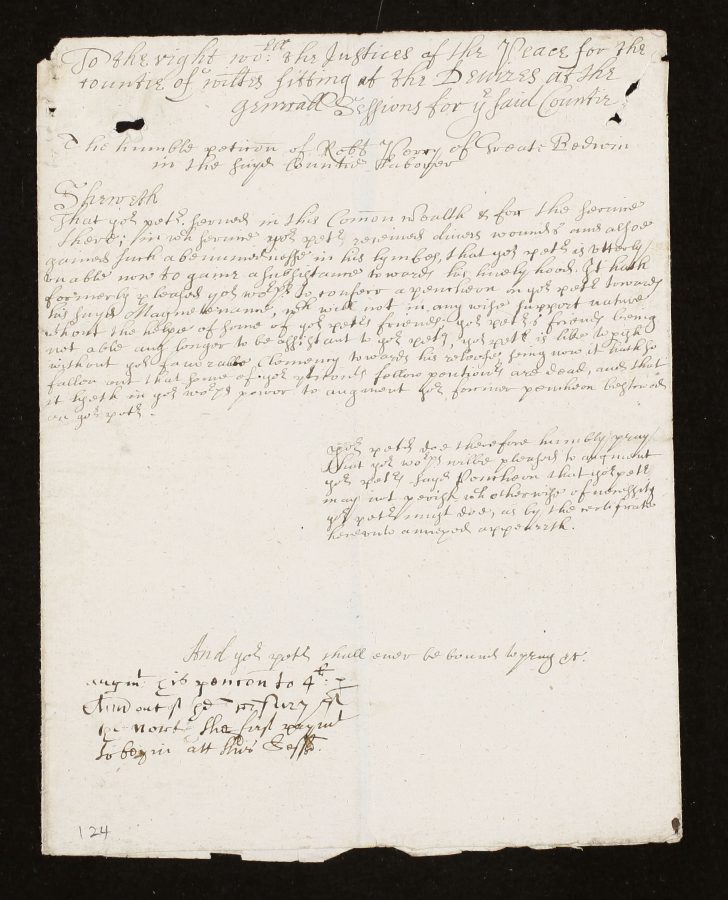 To the right wo:ll the Justices of the Peace for the
Countie of wiltes sitting at the Devizes at the
generall Sessions for ye said Countie
The humble peticon of Robt Perry of Greate Bedwin
in the sayd Countie Laborer
Sheweth
That yor petr served in this Comon wealth & for the service
there; in wch service yor petr received divers wounds and alsoe
gained such a benummednesse in his lymbes, that yor petr is utterly
unable now to gaine a subsistance towards his livelyhood. It hath
formerly pleased yor worps to confer a pencheon on yor petr towards
his sayd Maynetenance, wch will not in any wise support nature
without the helpe of some of yor petrs friends yor petrs friends being
not able any longer to be assistant to yor petr, yor petr is like to perish
without yor favorable Clemency towards his releise, being now it hath so
fallen out that some of yor petrs fellow pentioners are dead, and that
it lyeth in yor worps power to augment yor former pencheon bestowed
on yor petr.
yor petr doe therefore humbly pray
that yor worps wilbe pleased to augment
yor petrs sayd Pencheon that yor petr
may not perish wch otherwise of necessity
yor petr must doe, as by the certificate
hereunto annexed appeareth.
And yor petr shall ever be bound to pray &c.
augmt his pencon to 4l p
Ann out of
the North the first paymt
to begin att this Sess.
124